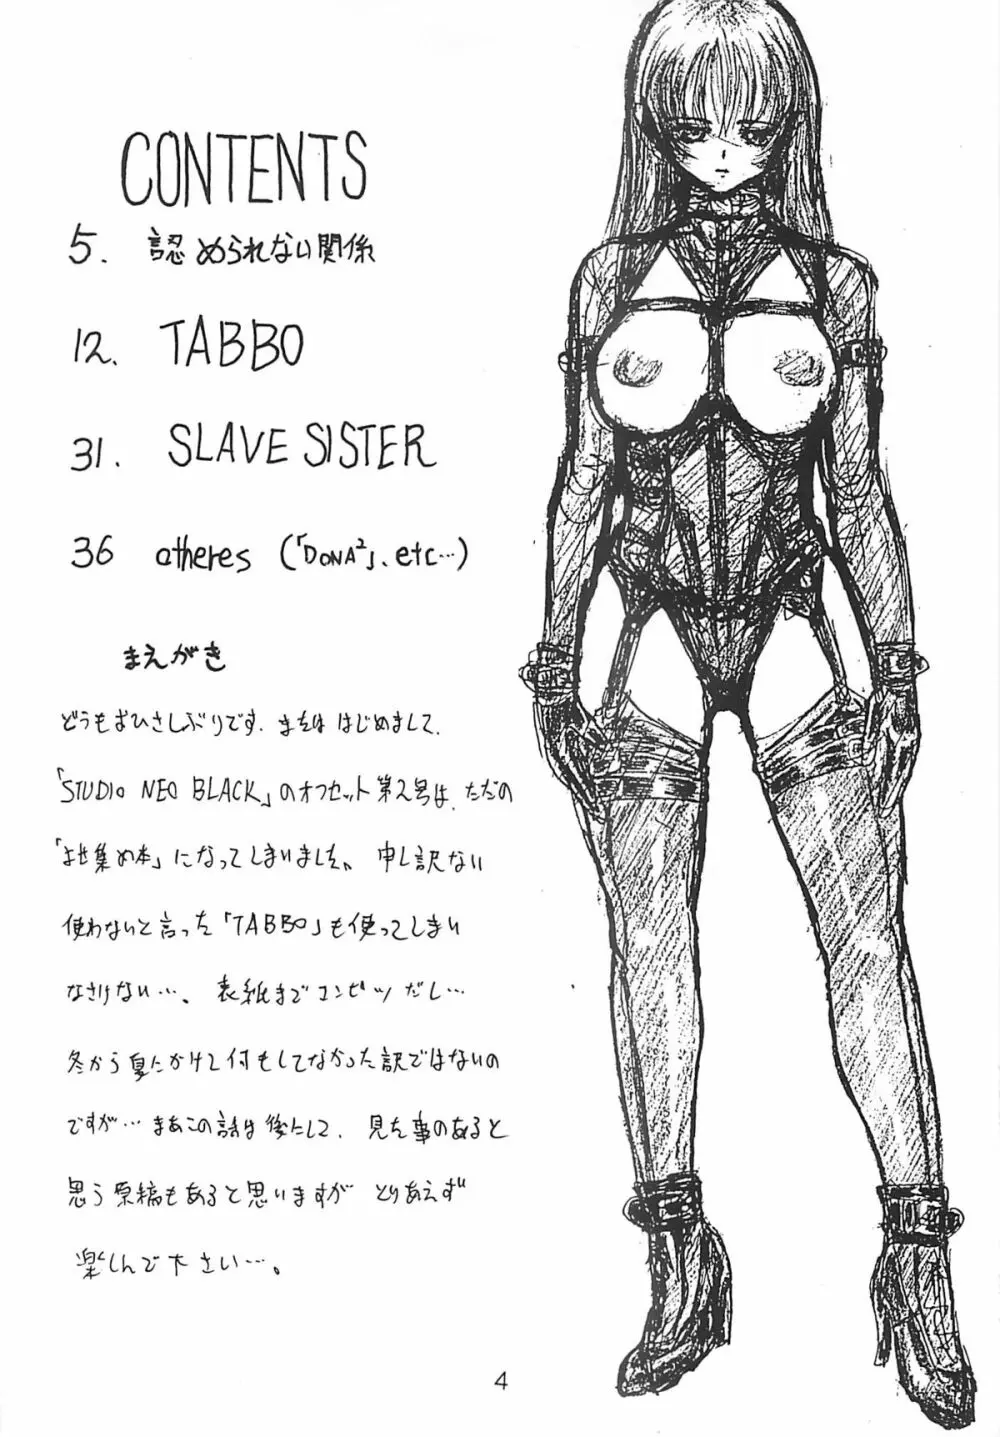 CONTENTS
5. 認められない関係
12. TABBO
31. SLAVE SISTER
36 atheres (「DONA²」、etc…)
まえがき
どうもおひさしぶりです、またははじめまして、
「STUDIO NEO BLACK」のオフセット第2号は、ただの
「よせ集め本」になってしまいました、申し訳ない
使わないと言った「TABBO」も使ってしまい
なさけない…、表紙までエンピツだし…
冬から夏にかけて何もしてなかった訳ではないの
ですが…まあこの話は後にして、見た事のあると
思う原稿もあると思いますが とりあえず
楽しんで下さい…。
4